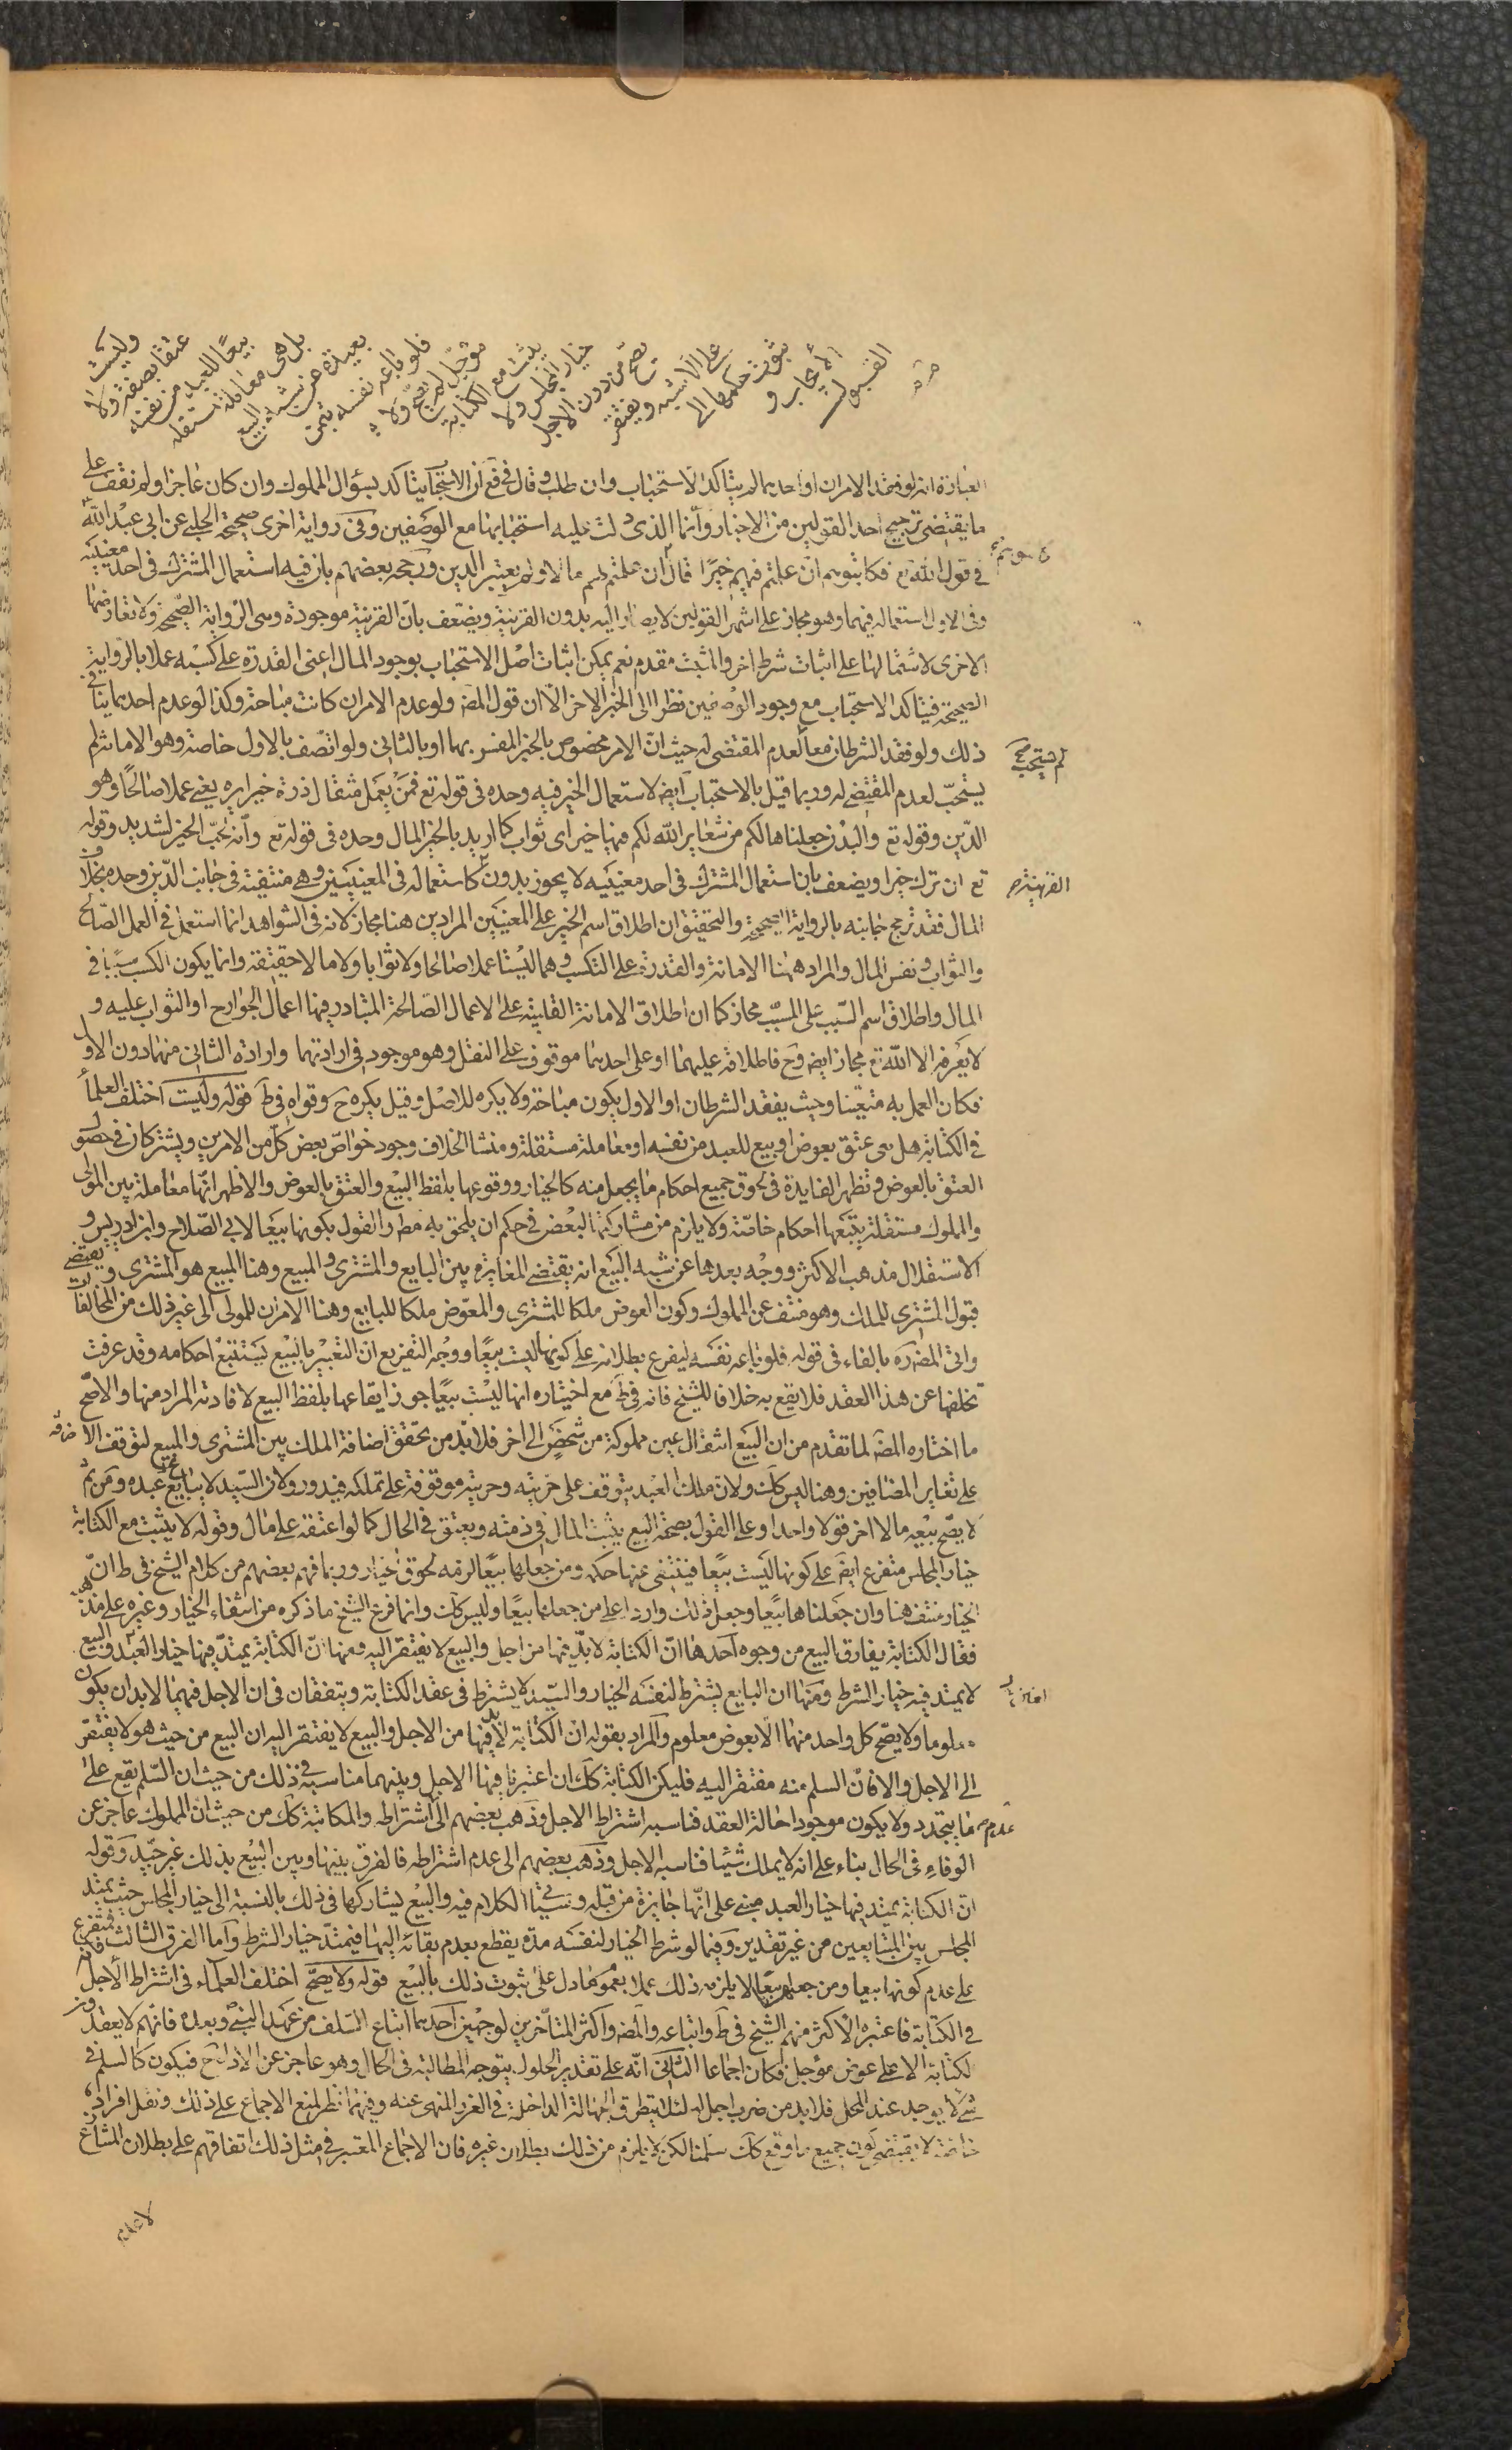 وليست
عتقا بصفة ولا
بيعًا للعبد من نفسه
بل هي معاملة مستقلة
بعيدة عن شبه البيع
فلو باعه نفسه بثمن
مؤجل لم يصح ولا
يثبت مع الكتابة
خيار المجلس ولا
تصح من دون الاجل
على الاشبه ويفتقر
ثبوت حكمها الى
الايجاب و
القبول
العبارة انه لو فقد الامران او احدهما لم يتاكد الاستحباب وان طلب وقال في فع ان الاستحباب يتاكد بسؤال المملوك وان كان عاجزا ولم نقف على
ما يقتضي ترجيح احد القولين من الاخبار وانما الذي دلت عليه استحبابها مع الوصفين وفي رواية اخرى صحيحة الحلبي عن ابي عبد الله
في قول الله تع فكاتبوهم ان علمتم فيهم خيرًا قال ان علمتم لهم مالا ولم يعتبر الدين ورجحه بعضهم بان فيه استعمال المشترك في احد معنييه
وفي الاول استعماله فيهما وهو مجاز على اشهر القولين لا يصار اليه بدون القرينة ويضعف بان القرينة موجودة وهي الرواية الصحيحة ولا تعارضها
الاخرى لاشتمالها على اثبات شرط اخر والمثبت مقدم نعم يمكن اثبات اصل الاستحباب بوجود المال اعني القدرة على كسبه عملا بالرواية
الصحيحة فيتاكد الاستحباب مع وجود الوصفين نظرا الى الخبر الاخر الا ان قول المصه ولو عدم الامران كانت مباحة وكذا لو عدم احدهما ينافي
ذلك ولو فقد الشرطان معا لعدم المقتضي له حيث ان الامر مخصوص بالخير المفسر بهما او بالثاني ولو اتصف بالاول خاصة وهو الامانة لم
يستحب لعدم المقتضي له وربما قيل بالاستحباب ايضا لاستعمال الخير فيه وحده في قوله تع فمن يعمل مثقال ذرة خيرا يره يعني عملا صالحًا وهو
الدين وقوله تع والبدن جعلناها لكم من شعاير الله لكم فيها خير اي ثواب كما اريد بالخير المال وحده في قوله تع وانه لحب الخير لشديد وقوله
تع ان ترك خيرا ويضعف بان استعمال المشترك في احد معنييه لا يجوز بدون كاستعماله في المعنيين وهي منتفية في جانب الدين وحده بخلاف
المال فقد ترجح جانبه بالرواية الصحيحة والتحقيق ان اطلاق اسم الخير على المعنيين المرادين هنا مجاز لانه في الشواهد انما استعمل في العمل الصالح
والثواب ونفس المال والمراد ههنا الامانة والقدرة على التكسب وهما ليستا عملا صالحا ولا ثوابا ولا مالا حقيقة وانما يكون الكسب سببا في
المال واطلاق اسم السبب على المسبب مجاز كما ان اطلاق الامانة القلبية على الاعمال الصالحة المتبادر فيها اعمال الجوارح او الثواب عليه و
لا يعرفه الا الله تع مجاز ايض وح فاطلاقه عليهما او على احدهما موقوف على النقل وهو موجود في ارادتهما وارادة الثاني منهما دون الاول
فكان العمل به متعينا وحيث يفقد الشرطان او الاول يكون مباحة ولا يكره للاصل وقيل يكره ح وقواه في ط قوله وليست اختلف العلماء
في الكتابة هل هي عتق بعوض او بيع للعبد من نفسه او معاملة مستقلة ومنشا الخلاف وجود خواص بعض كل من الامرين ويشتركان في حصول
العتق بالعوض وتظهر الفايدة في لحوق جميع احكام ما يجعل منه كالخيار ووقوعها بلفظ البيع والعتق بالعوض والاظهر انها معاملة بين المولى
والمملوك مستقلة يتبعها احكام خاصة ولا يلزم من مشاركتها البعض في حكم ان يلحق به مط والقول بكونها بيعا لابي الصلاح وابن ادريس و
الاستقلال مذهب الاكثر ووجه بعدها عن شبه البيع انه يقتضي المغايرة بين البايع والمشتري والمبيع وهنا المبيع هو المشتري ويقتضي
قبول المشتري للملك وهو منتف عن المملوك وكون العوض ملكا للمشتري والمعوض ملكا للبايع وهنا الامران للمولى الى غير ذلك من المخالفات
واتى المصره بالفاء في قوله فلو باعه نفسه ليفرع بطلانه على كونها ليست بيعًا ووجه التفريع ان التعبير بالبيع يستتبع احكامه وقد عرفت
تخلفها عن هذا العقد فلا يقع به خلافا للشيخ فانه في ط مع اختياره انها ليست بيعًا جوز ايقاعها بلفظ البيع لافادته المراد منها والاصح
ما اختاره المصه لما تقدم من ان البيع انتقال عين مملوكة من شخص الى اخر فلابد من تحقق اضافة الملك بين المشتري والمبيع لتوقف الاضافة
على تغاير المضافين وهنا ليس كك ولان ملك العبد يتوقف على حريته وحريته موقوفة على تملكه فيدور ولان السيد لا يبايع عبده ومن ثم
لا يصح بيعه مالا اخر قولا واحدا وعلى القول بصحة البيع يثبت المال في ذمته ويعتق في الحال كما لو اعتقه على مال وقوله لا يثبت مع الكتابة
خيار المجلس متفرع ايض على كونها ليست بيعًا فينتفي عنها حكمه ومن جعلها بيعًا لزمه لحوق خياره وربما فهم بعضهم من كلام الشيخ في ط ان
الخيار منتف هنا وان جعلناها بيعا وجعل ذلك واردا على من جعلها بيعًا وليس كك وانما فرع الشيخ ما ذكره من انتفاء الخيار وغيره على مذهبه
فقال الكتابة يفارق البيع من وجوه احدها ان الكتابة لابد فيها من اجل والبيع لا يفتقر اليه ومنها ان الكتابة يمتد فيها خيار العبد والبيع
لا يمتد فيه خيار الشرط ومنها ان البايع يشترط لنفسه الخيار والسيد لا يشترط في عقد الكتابة ويتفقان في ان الاجل فيهما لابد ان يكون
معلوما ولا يصح كل واحد منهما الا بعوض معلوم والمراد بقوله ان الكتابة لابد فيها من الاجل والبيع لا يفتقر اليه ان البيع من حيث هو لا يفتقر
الى الاجل والا فان السلم منه مفتقر اليه فليكن الكتابة كك ان اعتبرنا فيها الاجل وبينهما مناسبة في ذلك من حيث ان السلم يقع على
ما يتجدد ولا يكون موجودا حالة العقد فناسبه اشتراط الاجل وذهب بعضهم الى اشتراطه والمكاتبة كك من حيث ان المملوك عاجز عن
الوفاء في الحال بناء على انه لا يملك شيئا فناسبه الاجل وذهب بعضهم الى عدم اشتراطه فالفرق بينها وبين البيع بذلك غير جيد وقوله
ان الكتابة يمتد فيها خيار العبد مبني على انها جايزة من قبله وسيأتي الكلام فيه والبيع يشاركها في ذلك بالنسبة الى خيار المجلس حيث يمتد
المجلس بين المتبايعين من غير تقدير وفيما لو شرط الخيار لنفسه مدة يقطع بعدم بقائه اليها فيمتد خيار الشرط واما الفرق الثالث فمتفرع
على عدم كونها بيعا ومن جعلها بيعًا لا يلزمه ذلك عملا بعموم ما دل على ثبوت ذلك بالبيع قوله ولا يصح اختلف العلماء في اشتراط الاجل
في الكتابة فاعتبره الاكثر منهم الشيخ في ط واتباعه والمصه واكثر المتاخرين لوجهين احدهما اتباع السلف من عهد النبي وبعده فانهم لا يعقدون
لكتابة الا على عوض مؤجل فكان اجماعا الثاني انه على تقدير الحلول يتوجه المطالبة في الحال وهو عاجز عن الاداء ح فيكون كالسلم في
شيء لا يوجد عند المحل فلابد من ضرب اجل له لئلا يتطرق الجهالة الداخلة في الغرر المنهي عنه وفيهما نظر لمنع الاجماع على ذلك ونقل افراد
خاصة لا يقتضي كون جميع ما وقع كك سلمنا لكن لا يلزم من ذلك بطلان غيره فان الاجماع المعتبر في مثل ذلك اتفاقهم على بطلان المتنازع
لم يستحب
القرينة
عدم